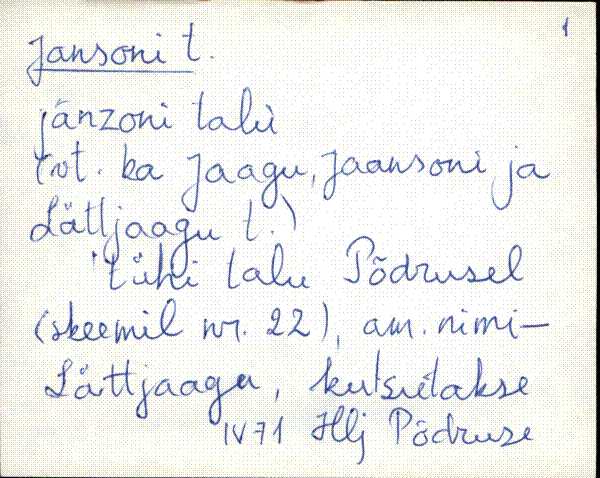 1
Jansoni t.
jánzoni talù
(vt. ka Jaagu, Jaansoni ja
Lättjaagu t.)
'tühi talu Põdrusel
(skeemil nr. 22), am. nimi—
Lättjaagu, kutsutakse
IV 71 Hlj Põdruse